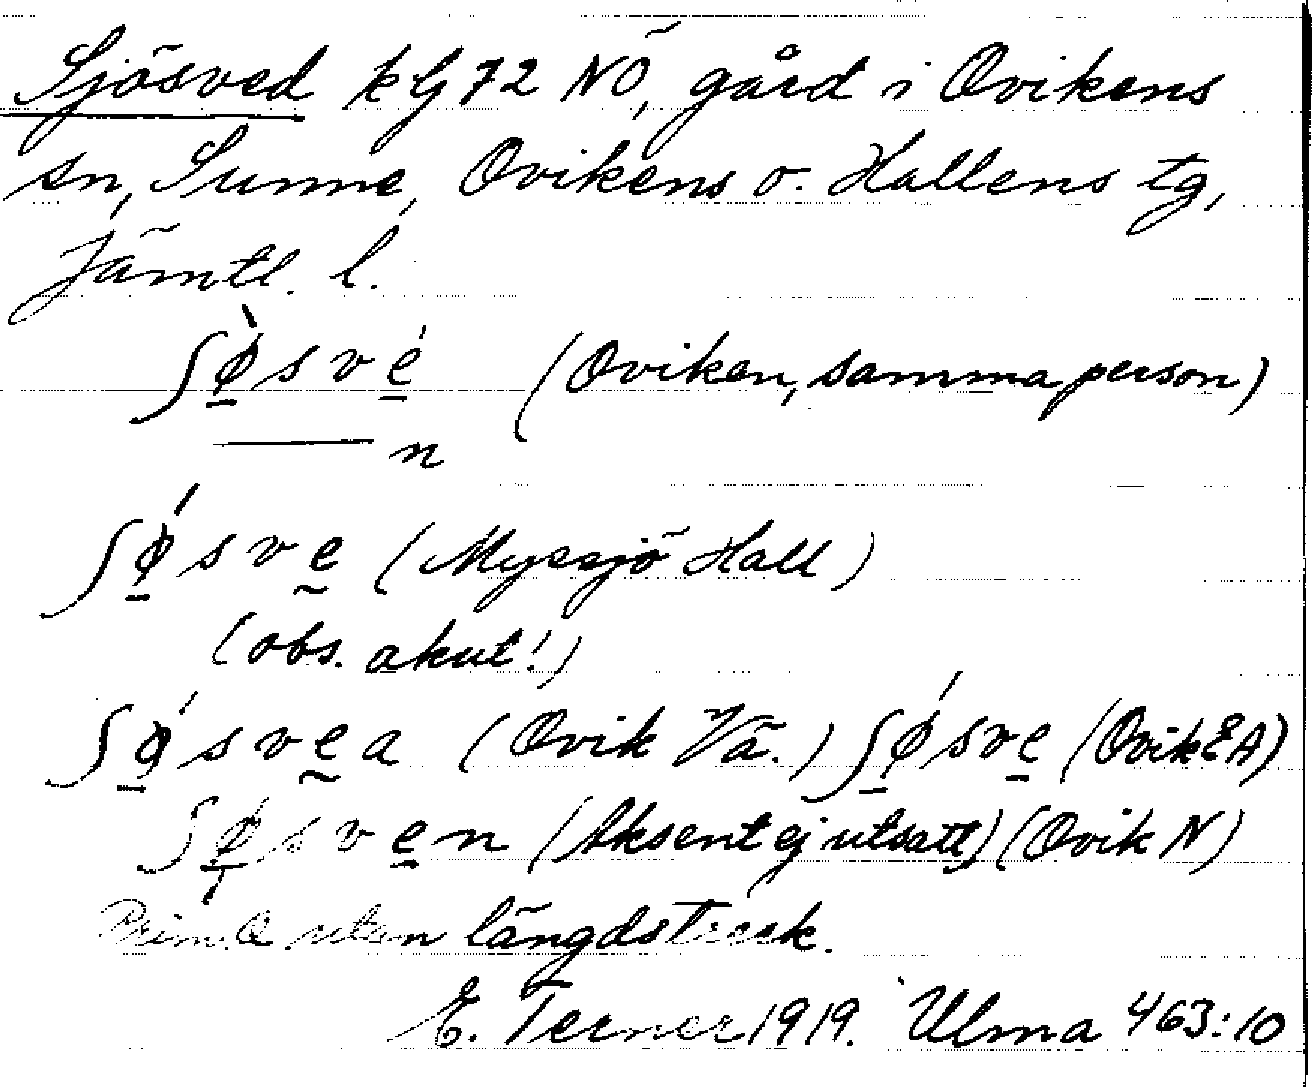 Sjösved kfj 72 NÖ, gård i Ovikens
sn, Sunne, Ovikens o. Hallens tg,
Jämtl. l.
ʃø̠̀své̠ (Oviken, samma person)
n
ʃǿ̠svḛ (Myssjö Hall)
(obs. akut!)
ʃǿ̠svḛa (Ovik Vä.) ʃǿ̠sve̠ (Ovik EA)
ʃø̠sve̠n (Aksent ej utsatt) (Ovik N)
Prim. Q utan längdstreck.
E. Terner 1919. Ulma 463:10